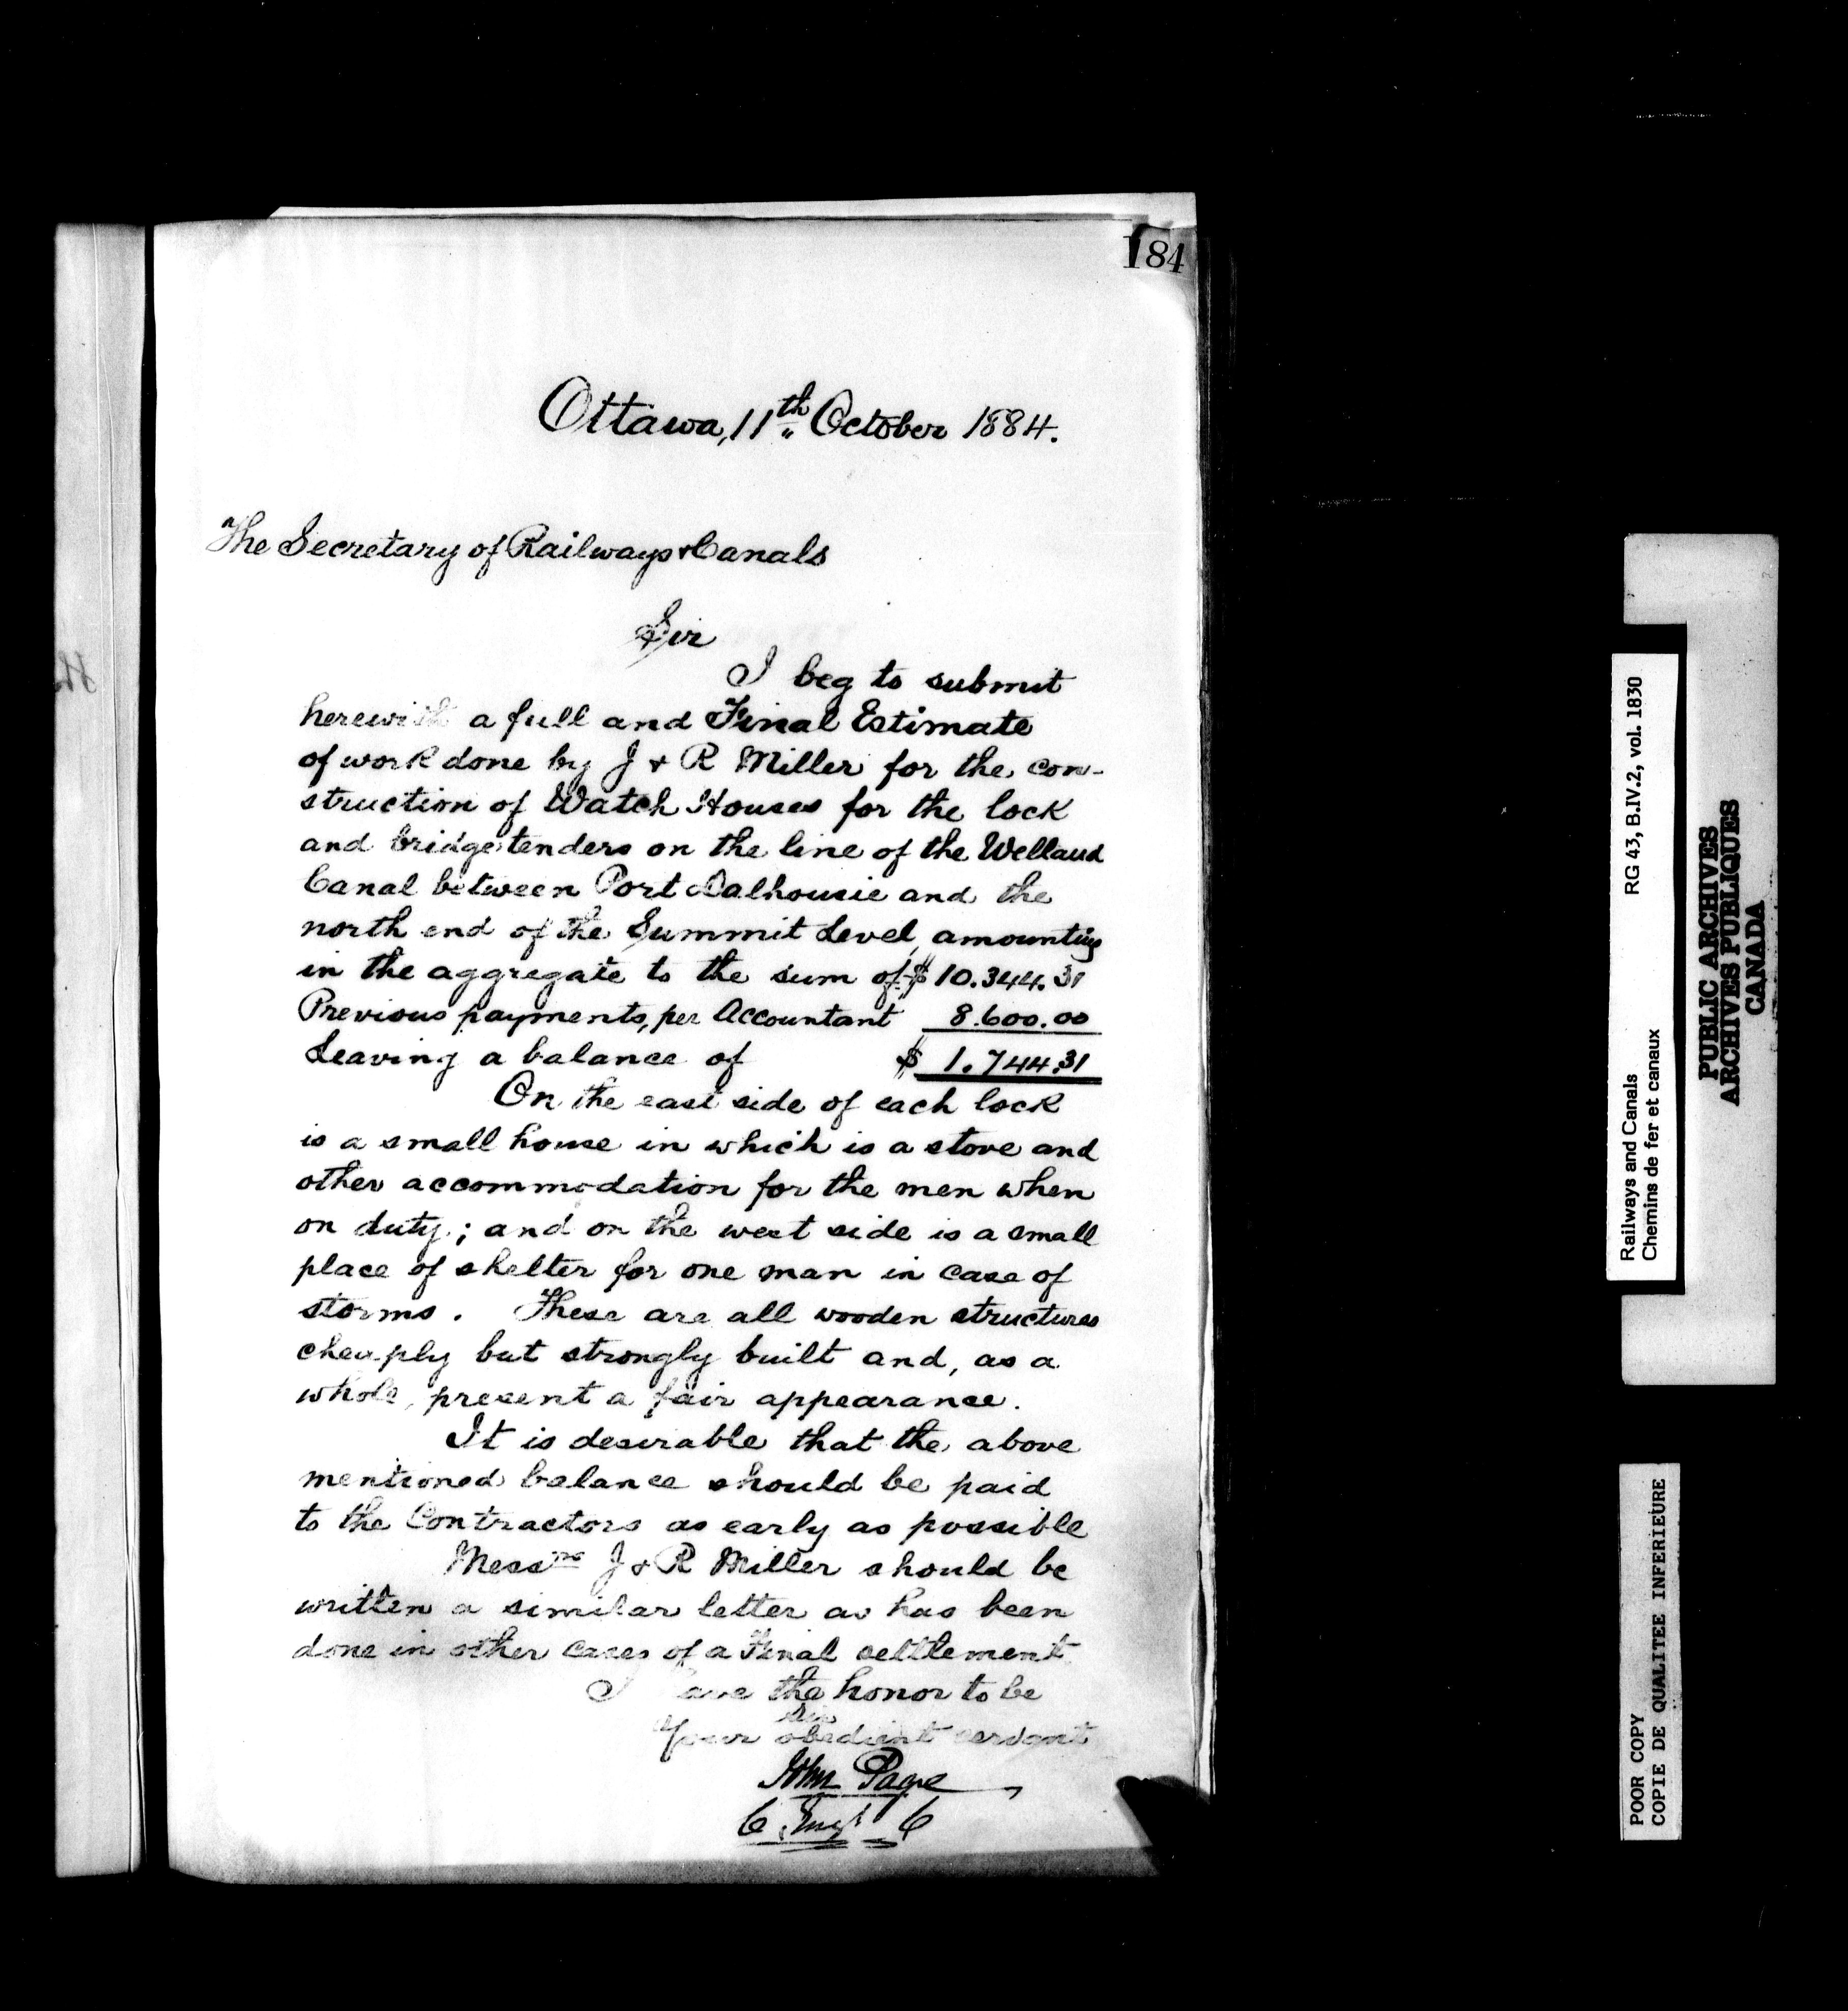 184
Ottawa, 11th October 1884.
The Secretary of Railways & Canals
Sir
I beg to submit
herewith a full and Final Estimate
of work done by J & R Miller for the con-
struction of Watch Houses for the lock
and bridge tenders on the line of the Welland
Canal between Port Dalhousie and the
north end of the Summit Level, amounting
in the aggregate to the sum of $ 10.344.31
Previous payments, per Accountant 8.600.00
Leaving a balance of $ 1.744.31
On the east side of each lock
is a small house in which is a stove and
other accommodation for the men when
on duty; and on the west side is a small
place of shelter for one man in case of
storms. These are all wooden structures
cheaply but strongly built and, as a
whole, present a fair appearance.
It is desirable that the above
mentioned balance should be paid
to the Contractors as early as possible
Messrs J & R Miller should be
written a similar letter as has been
done in other cases of a Final settlement
I have the honor to be
Sir
Your obedient servant
John Page
C. Engr C
Railways and Canals RG 43, B.IV.2, vol. 1830
Chemins de fer et canaux
PUBLIC ARCHIVES
ARCHIVES PUBLIQUES
CANADA
POOR COPY
COPIE DE QUALITEE INFERIEURE